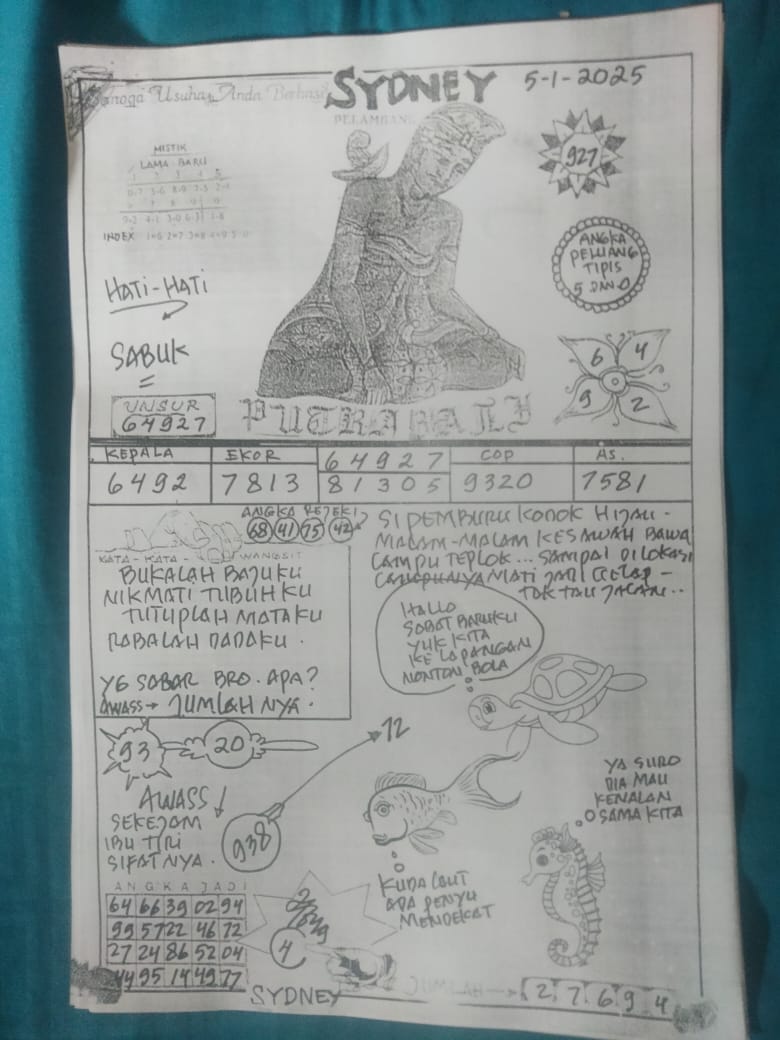 Semoga Usuha Anda Berhasil
SYDNEY
5-1-2025
PELAMBANG
MISTIK
LAMA-BARU
INDEX
927
ANGKA
PELUANG
TIPIS
5 DAN 0
HATI-HATI
SABUK
6 4
9 2
UNSUR
64927
PUTRA BALI
KEPALA EKOR 64927 COP AS.
6492 7813 81305 9320 7581
ANGKA REJEKI
68 41 75 42
KATA-KATA WANGSIT
BUKALAH BAJUKU
NIKMATI TUBUHKU
TUTUPLAH MATAKU
RABALAH DADAKU.
YG SABAR BRO. APA?
AWASS → JUMLAHNYA.
SI PEMBURU KODOK HIJAU-
MALAM-MALAM KESAWAH BAWA
LAMPU TEPLOK... SAMPAI DILOKASI
LAMPUNYA MATI JADI GELAP-
TOK TAU JALAN..
HALLO
SOBAT BARUKU
YUK KITA
KE LAPANGAN
NONTON BOLA
93 20
12
AWASS
SEKEJAM
IBU TIRI
SIFATNYA.
938
YA SURO
DIA MAU
KENALAN
SAMA KITA
KUDA LAUT
ADA PENYU
MENDEKAT
ANGKA JADI
64 66 39 02 94
99 57 22 46 72
27 24 86 52 04
44 95 14 49 77
4
SYDNEY
JUMLAH → 2 7 6 9 4